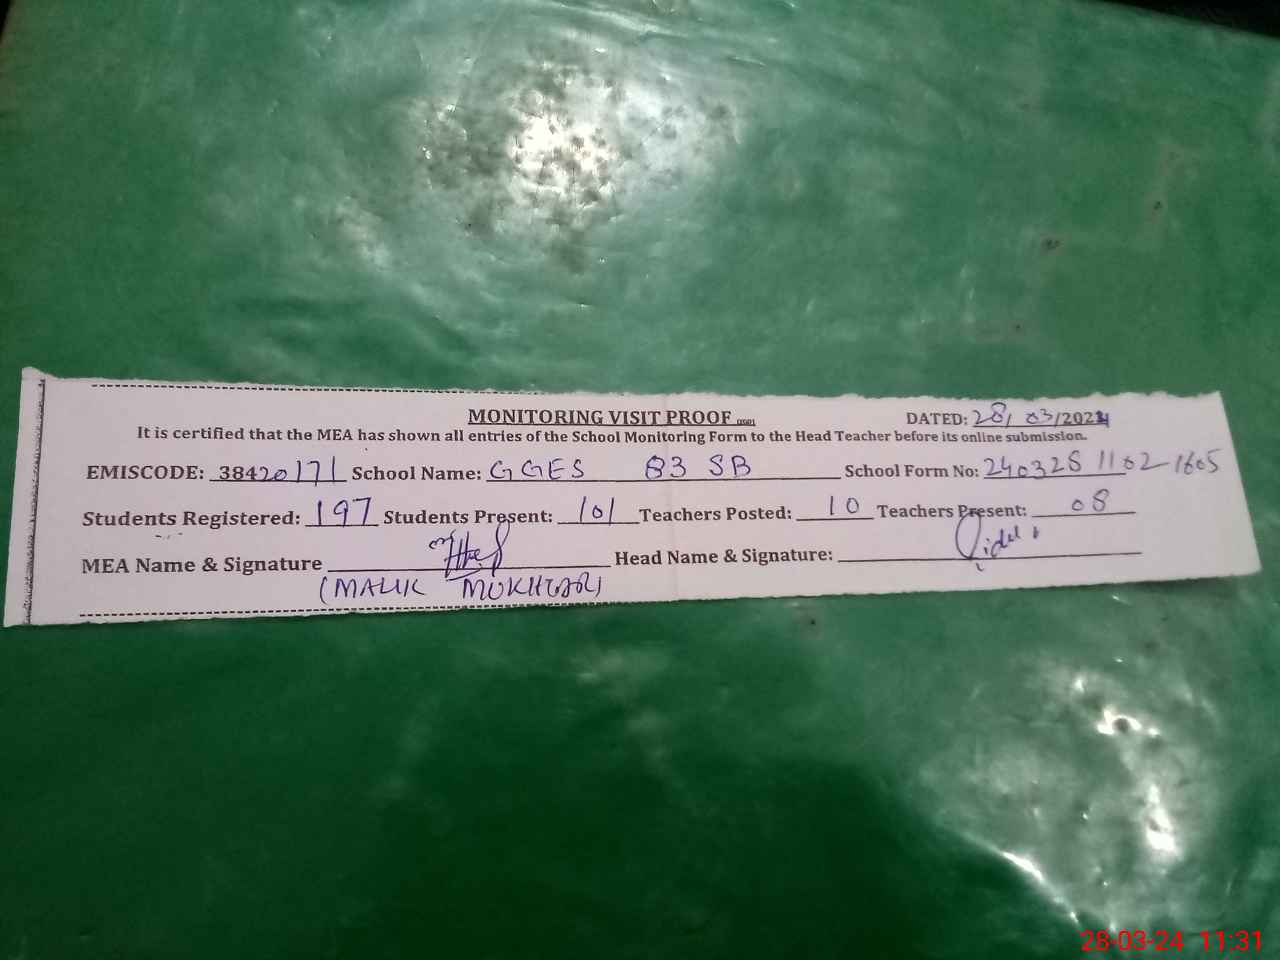 MONITORING VISIT PROOF
DATED: 28/03/2024
It is certified that the MEA has shown all entries of the School Monitoring Form to the Head Teacher before its online submission.
EMISCODE: 38420171 School Name: GGES 83 SB School Form No: 240328 1102 1605
Students Registered: 197 Students Present: 101 Teachers Posted: 10 Teachers Present: 08
MEA Name & Signature Head Name & Signature:
(MALIK MUKHTAR)
28-03-24 11:31